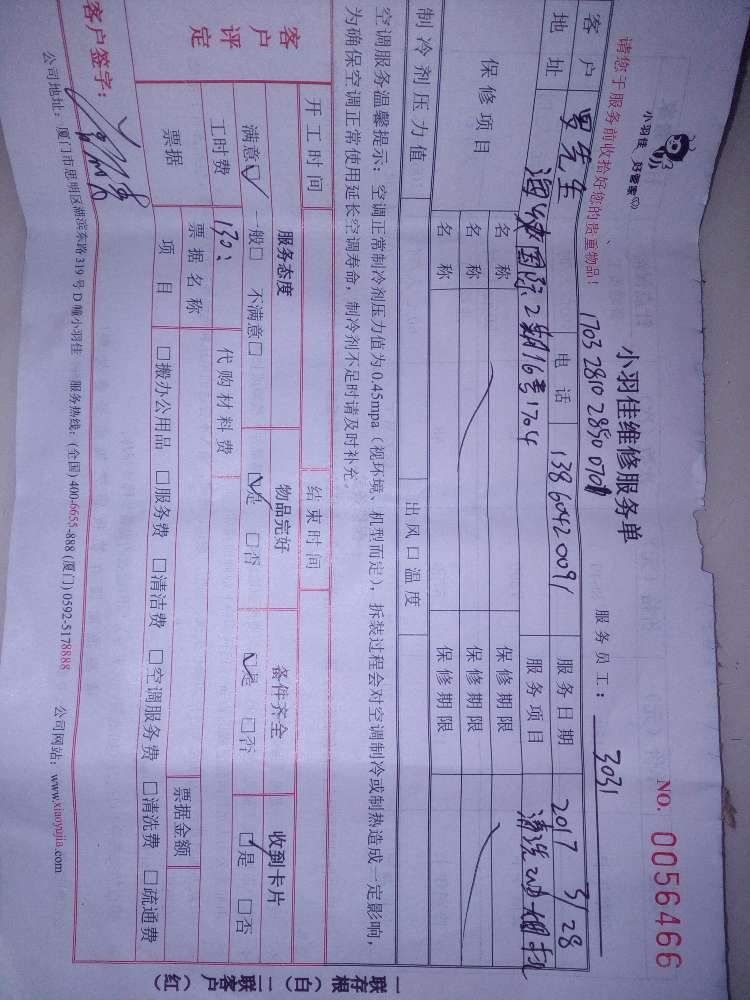 小羽佳 好管家
小羽佳维修服务单
NO. 0056466
请您于服务前收拾好您的贵重物品!
17032810285070
服务员工: 3031
客户 罗先生 电话 13860420091 服务日期 2017 3/28
地址 国际2期16号1704 服务项目 清洗油烟机
保修项目 名称 保修期限
名称 保修期限
名称 保修期限
制冷剂压力值 出风口温度
空调服务温馨提示: 空调正常制冷剂压力值为0.45mpa (视环境、机型而定), 拆装过程会对空调制冷或制热造成一定影响,
为确保空调正常使用延长空调寿命, 制冷剂不足时请及时补充。
开工时间 结束时间
客户评定 服务态度 物品完好 备件齐全 收到卡片
满意☑ 一般□ 不满意□ ☑是 □否 ☑是 □否 ☑是 □否
工时费 130 代购材料费
票据 票据名称 票据金额
项目 □搬办公用品 □服务费 □清洁费 □空调服务费 □清洗费 □疏通费
客户签字:
公司地址: 厦门市思明区湖滨东路319号D幢小羽佳 服务热线: (全国) 400-6655-888 (厦门) 0592-5178888 公司网站: www.xiaoyujia.com
一联存根(白) 二联客户(红)